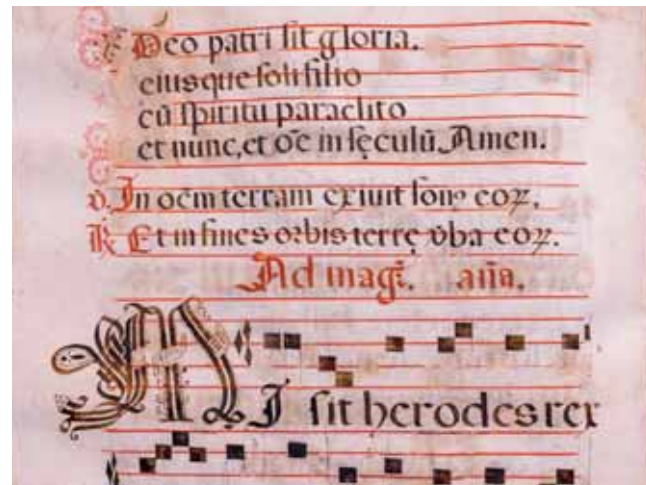 Deo patri sit gloria.
eiusque soli filio
cū spiritu paraclito
et nunc, et oē in sęculū. Amen.
V. In oēm terram exiuit sonꝰ eoꝝ.
R. Et in fines orbis terrę v̄ba eoꝝ.
Ad magt̄. an̄a.
Misit herodes rex